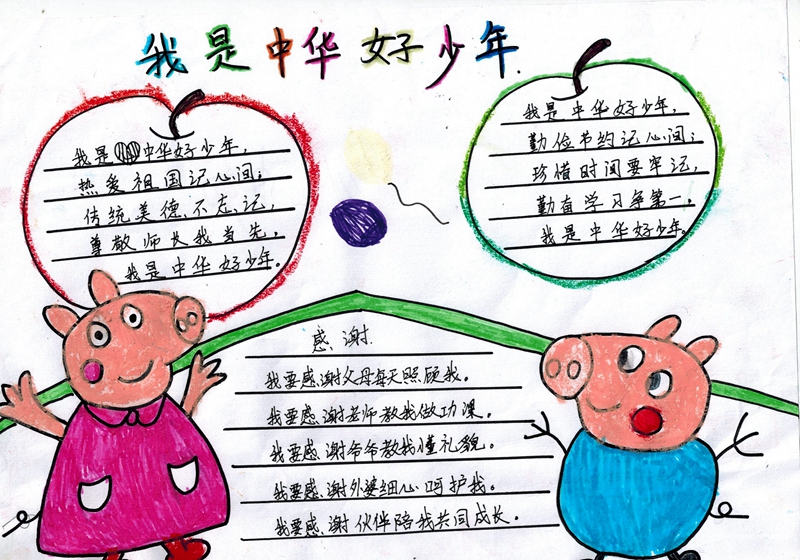 我是中华好少年
我是中华好少年，
热爱祖国记心间；
传统美德不忘记，
尊敬师长我当先，
我是中华好少年。
我是中华好少年，
勤俭节约记心间；
珍惜时间要牢记，
勤奋学习争第一，
我是中华好少年。
感谢
我要感谢父母每天照顾我。
我要感谢老师教我做功课。
我要感谢爷爷教我懂礼貌。
我要感谢外婆细心呵护我。
我要感谢伙伴陪我共同成长。